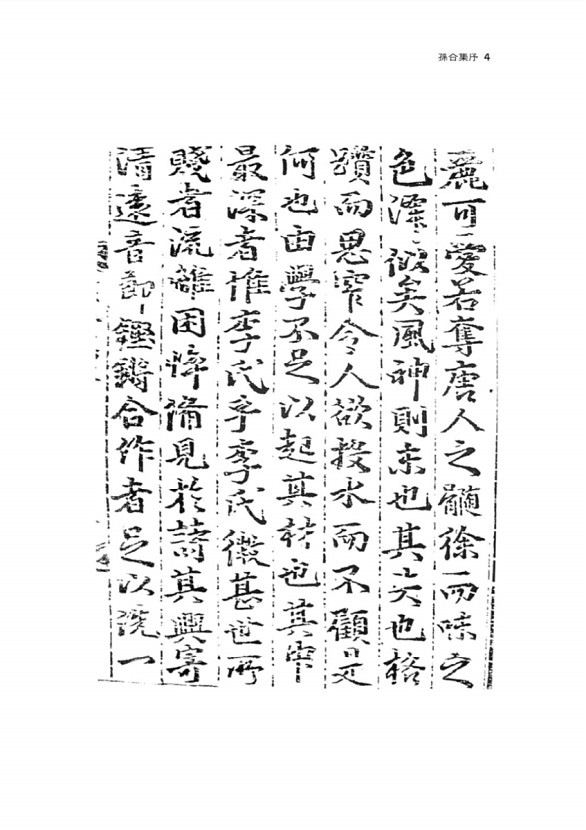 孫合集序 4
麗可愛若奪唐人之髓徐而味之
色澤似矣風神則未也其失也格
躓而思窄令人欲投水而不顧是
何也由學不足以起其材也其中
最深者惟李氏乎李氏微甚世所
賤者流離困悴備見於詩其興寄
清遠音節鏗鏘合作者足以洗一